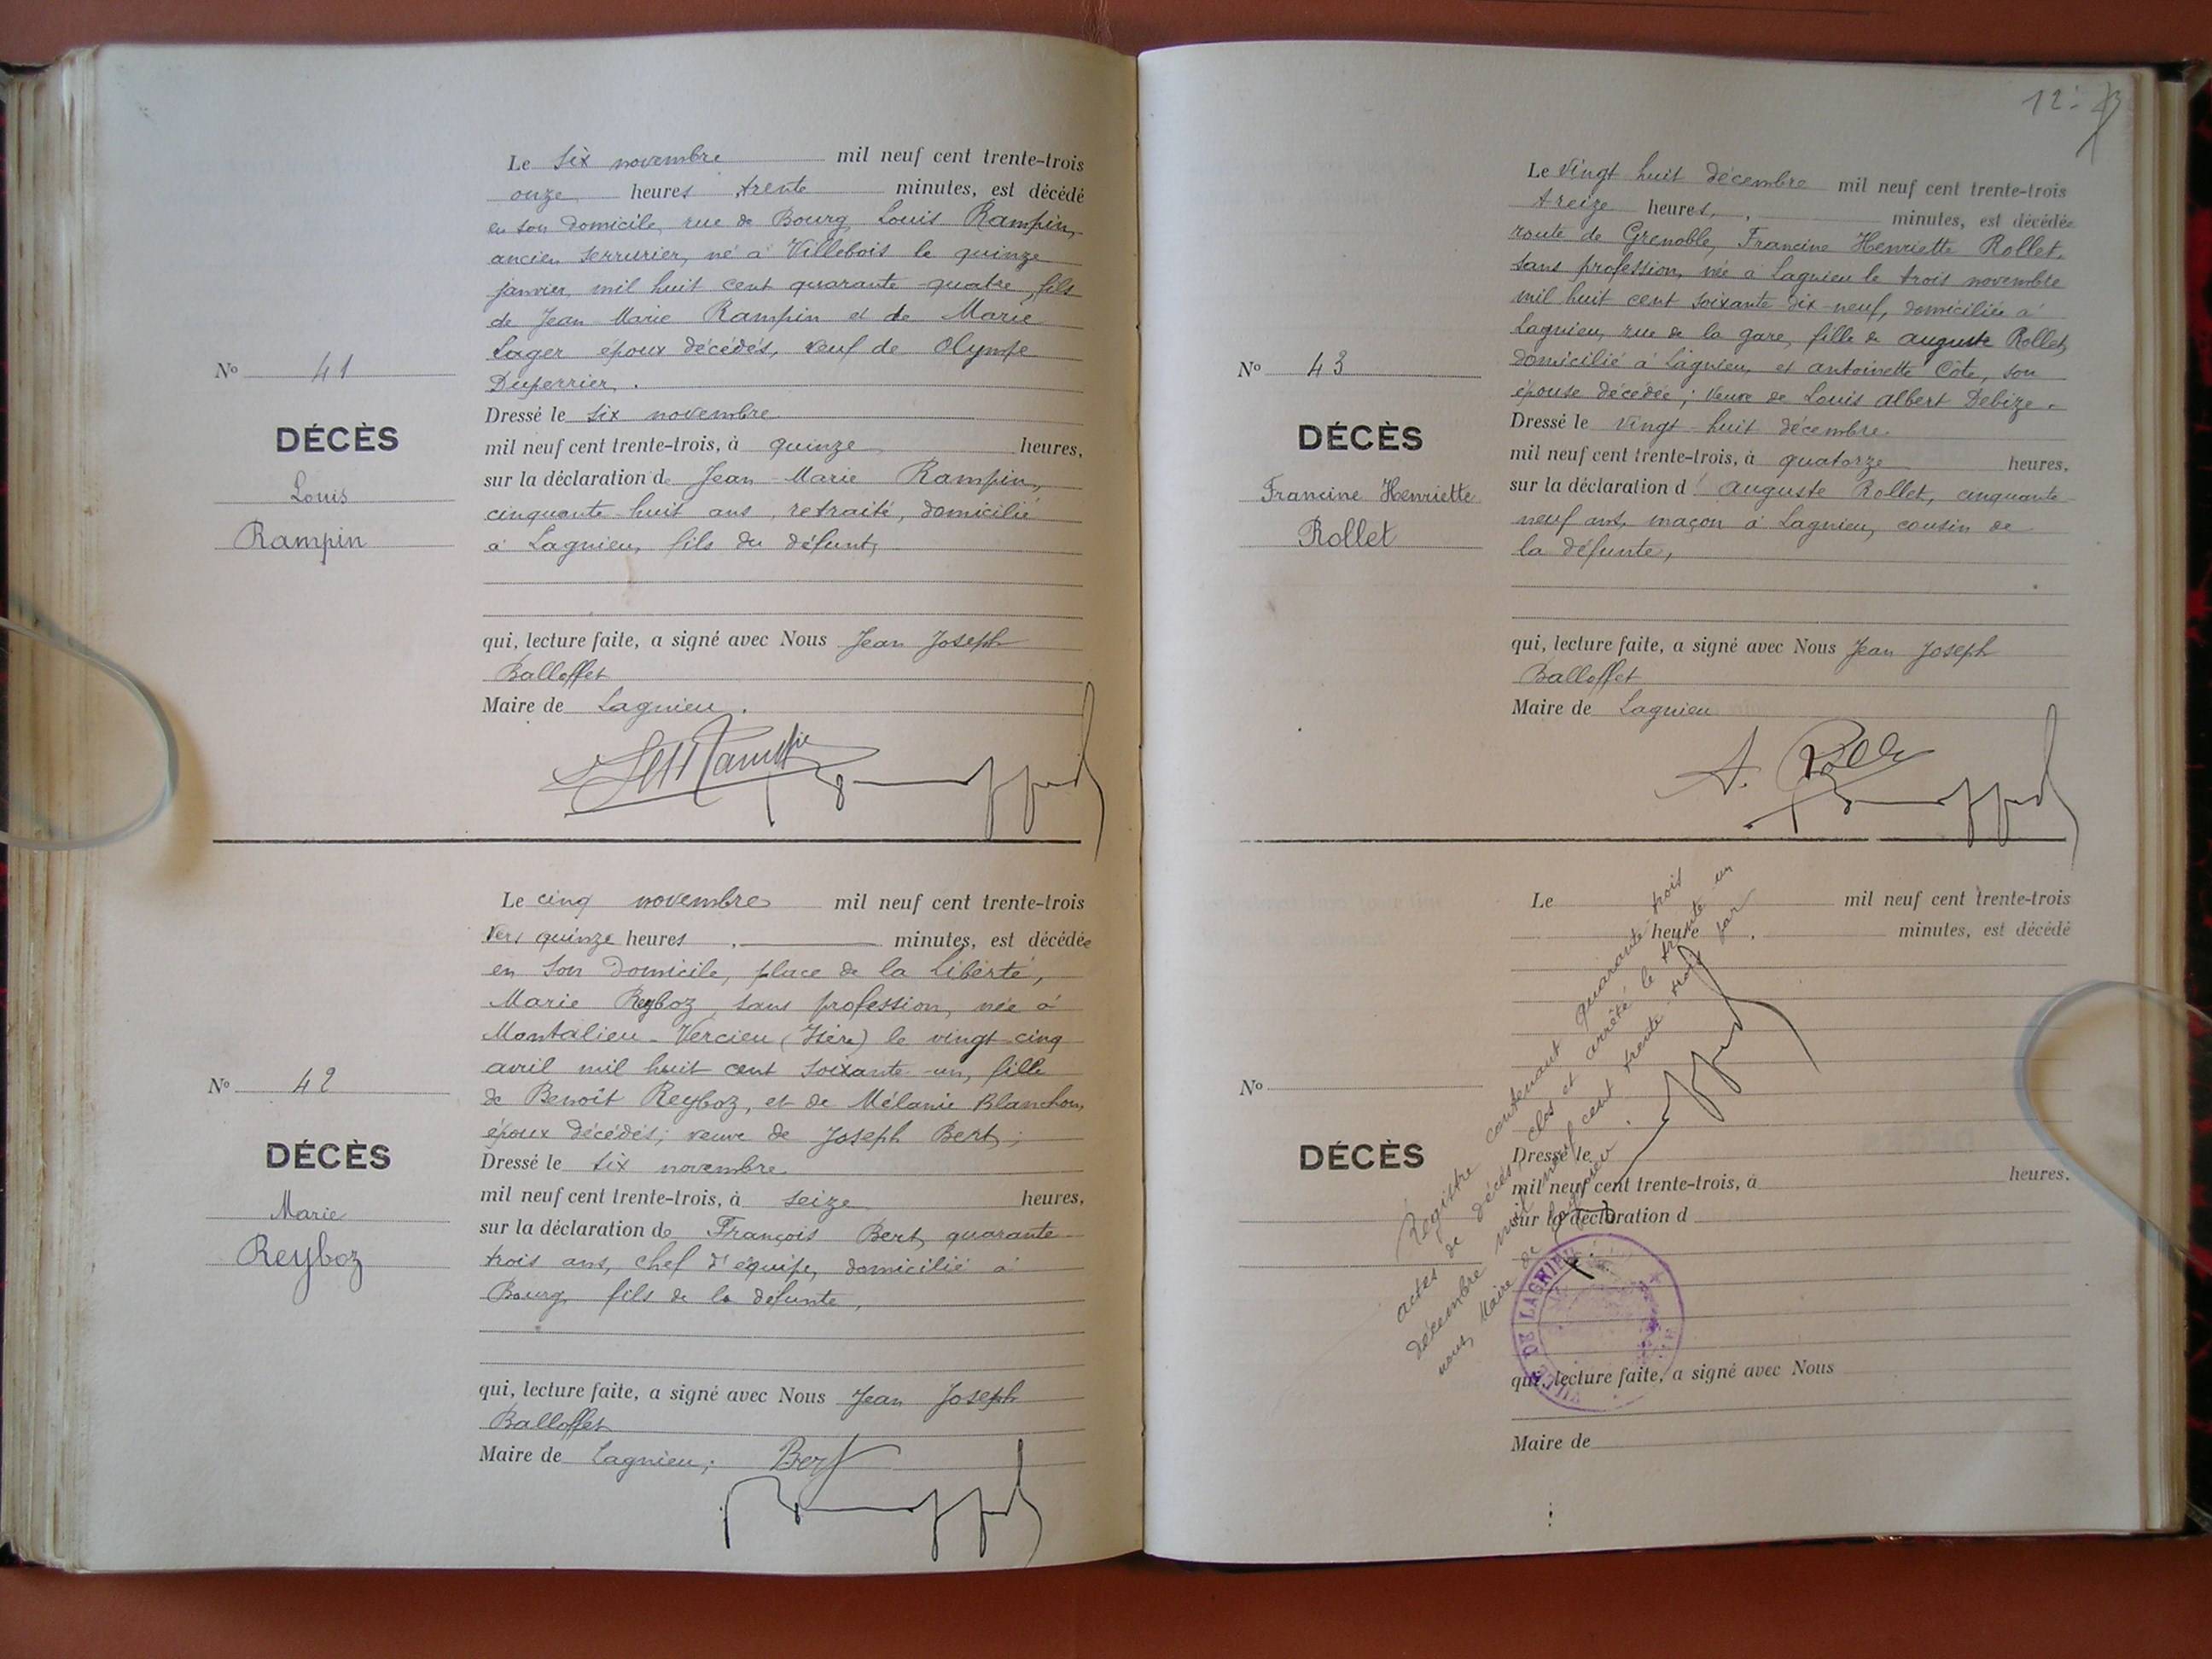 Le six novembre mil neuf cent trente-trois
onze heures trente minutes, est décédé
en son domicile, rue de Bourg, Louis Rampin,
ancien serrurier, né à Villebois le quinze
janvier mil huit cent quarante-quatre, fils
de Jean Marie Rampin et de Marie
Lager époux décédés, veuf de Olympe
Duperrier, .
Dressé le six novembre
mil neuf cent trente-trois, à quinze heures,
sur la déclaration de Jean-Marie Rampin,
cinquante-huit ans, retraité, domicilié
à Lagnieu, fils du défunt,
qui, lecture faite, a signé avec Nous Jean Joseph
Balloffet
Maire de Lagnieu .
No 41
DÉCÈS
Louis
Rampin
Le cinq novembre mil neuf cent trente-trois
Vers quinze heures . minutes, est décédée
en son domicile, place de la Liberté,
Marie Reyboz, sans profession, née à
Montalieu-Vercieu (Isère) le vingt-cinq
avril mil huit cent soixante-un, fille
de Benoît Reyboz, et de Mélanie Blanchon,
époux décédés; veuve de Joseph Bert;
Dressé le six novembre
mil neuf cent trente-trois, à seize heures,
sur la déclaration de François Bert, quarante-
trois ans, chef d'équipe, domicilié à
Bourg, fils de la défunte,
qui, lecture faite, a signé avec Nous Jean Joseph
Balloffet
Maire de Lagnieu; Bert
No 42
DÉCÈS
Marie
Reyboz
12
Le Vingt huit décembre mil neuf cent trente-trois
treize heures, . minutes, est décédée
route de Grenoble, Francine Henriette Rollet,
sans profession, née à Lagnieu le trois novembre
mil huit cent soixante-dix-neuf, domiciliée à
Lagnieu, rue de la gare, fille de auguste Rollet,
domicilié à Lagnieu, et antoinette Cote, son
épouse décédée; veuve de Louis albert Debize.
Dressé le Vingt-huit décembre
mil neuf cent trente-trois, à quatorze heures,
sur la déclaration d' auguste Rollet, cinquante-
neuf ans, maçon à Lagnieu, cousin de
la défunte,
qui, lecture faite, a signé avec Nous Jean Joseph
Balloffet
Maire de Lagnieu
No 43
DÉCÈS
Francine Henriette
Rollet
Le mil neuf cent trente-trois
heure . minutes, est décédé
No
DÉCÈS
Dressé le
mil neuf cent trente-trois, à heures,
sur la déclaration d
qui, lecture faite, a signé avec Nous
Maire de
Registre contenant quarante trois
actes de décès, clos et arrêté le trente-un
décembre mil neuf cent trente-trois par
nous, Maire de Lagnieu.
VILLE DE LAGNIEU